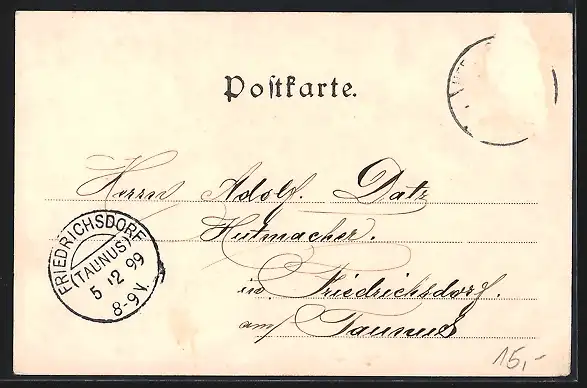 Postkarte.
Herrn Adolf. Datz
Hutmacher.
in Friedrichsdorf.
am Taunus
FRIEDRICHSDORF
(TAUNUS)
5 12 99
8-9 V.
15,-